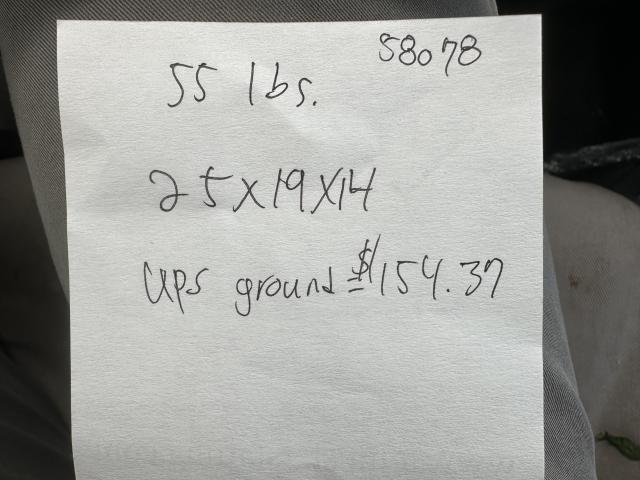 58078
55 lbs.
25x19x14
UPS ground = $154.37